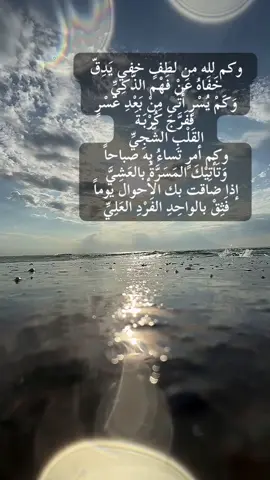 وكم لله من لطف خفي يَدِقّ
خَفَاهُ عَنْ فَهْمِ الذَّكِيِّ
وَكَمْ يُسْرٍ أَتَى مِنْ بَعْدِ عُسْرٍ
فَفَرَّجَ كُرْبَةَ
القَلْبِ الشَّجِيِّ
وكم أمرٍ تَساءُ به صباحاً
وَتَأْتِيْكَ المَسَرَّةُ بالعَشِيِّ
إذا ضاقت بك الأحوال يوماً
فَثِقْ بالواحِدِ الفَرْدِ العَلِيِّ